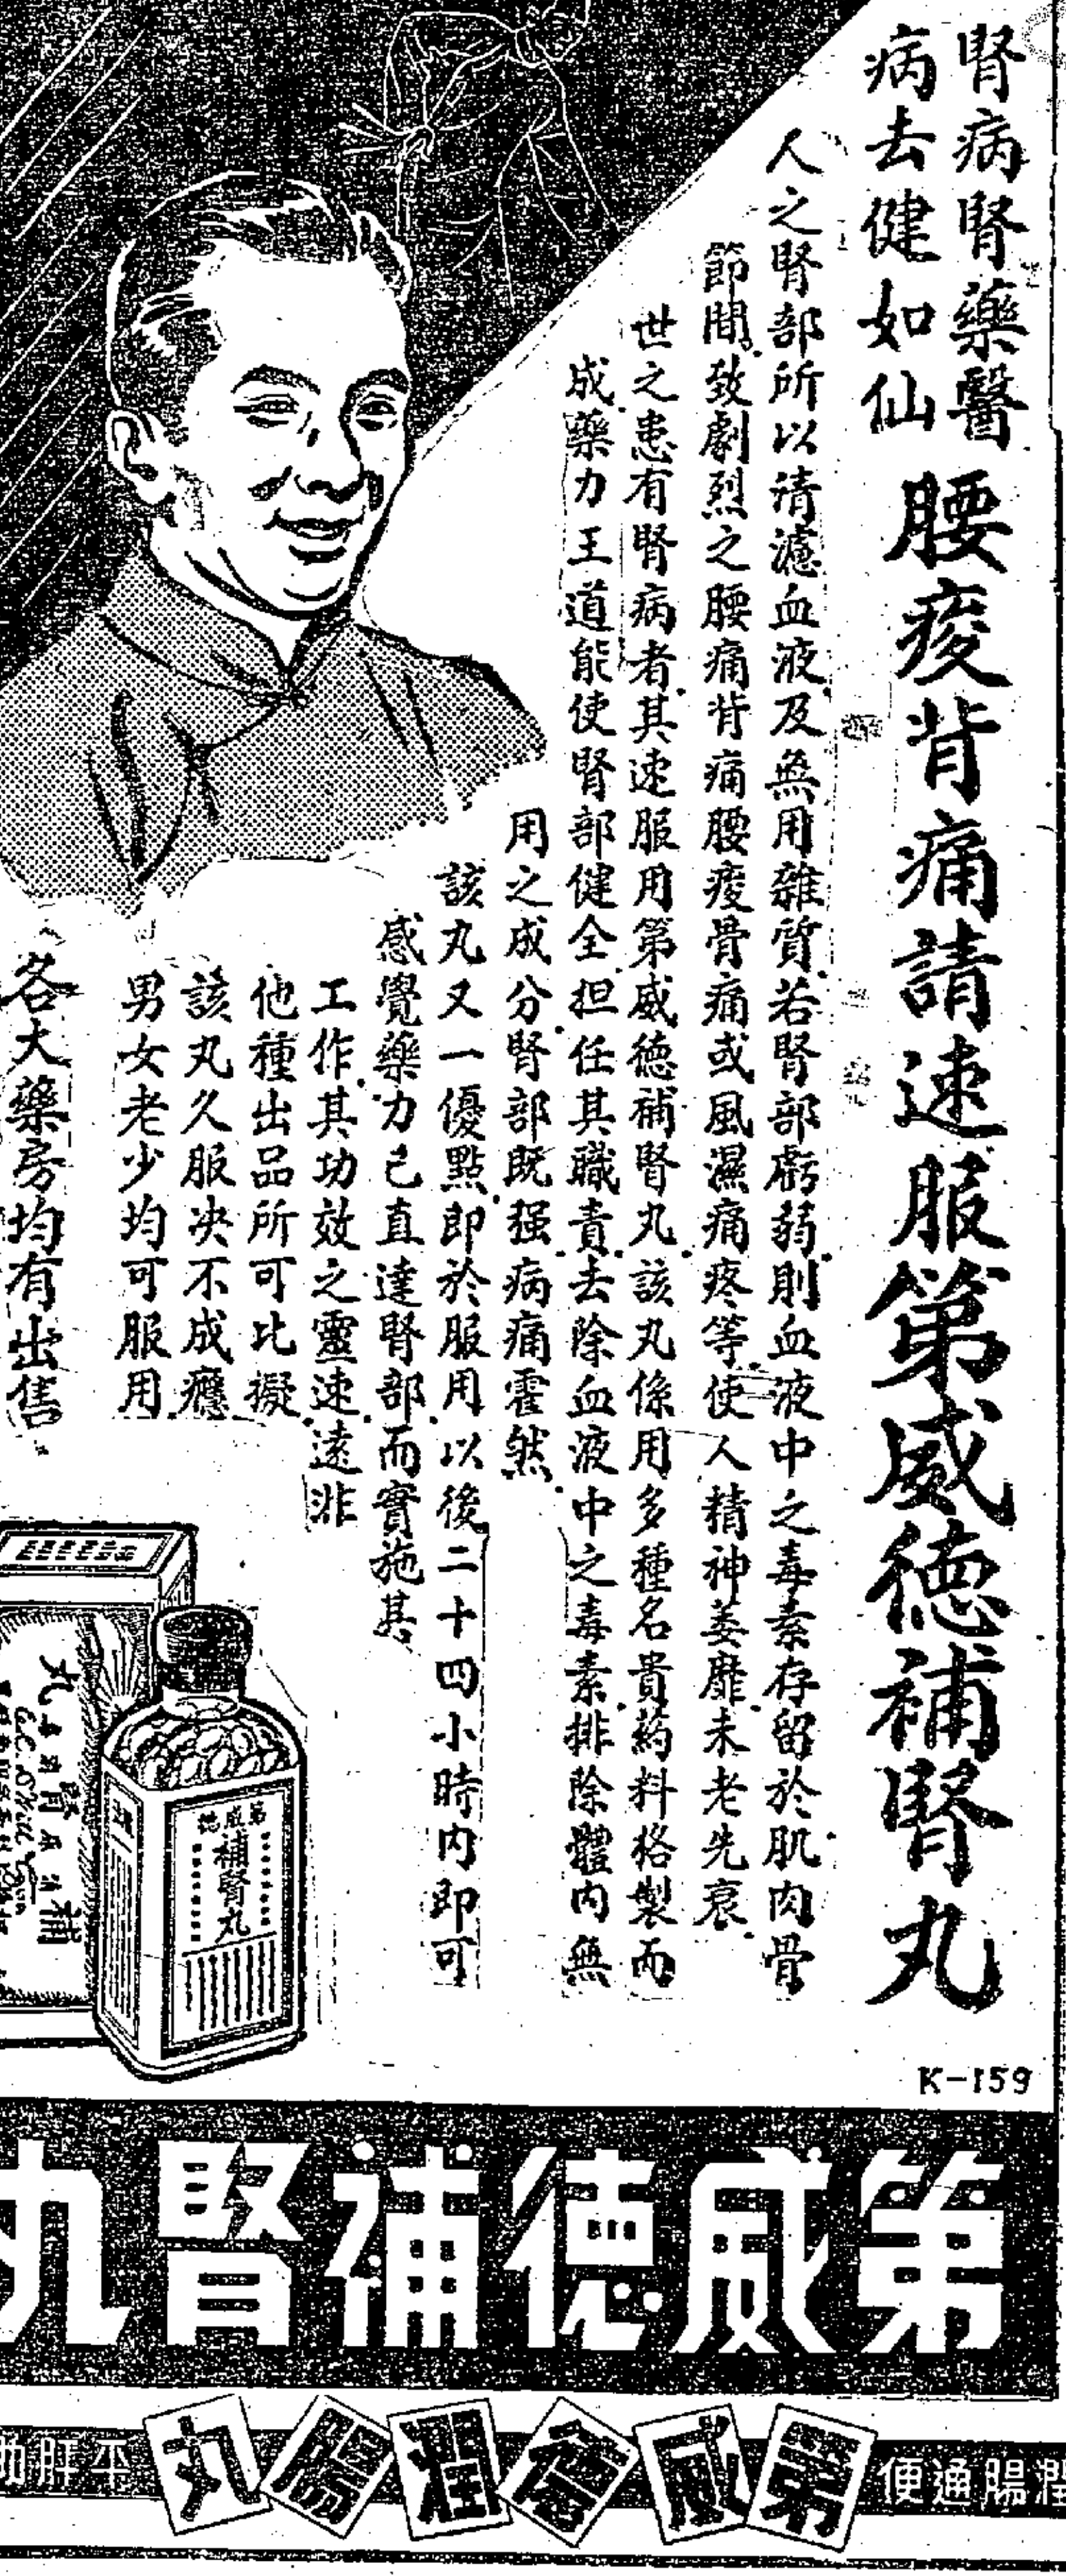 腎病腎藥醫
病去健如仙
腰痠背痛請速服第威德補腎丸
人之腎部所以清濾血液及無用雜質若腎部虧弱則血液中之毒素存留於肌肉骨
節間致劇烈之腰痛背痛腰痠骨痛或風濕痛疼等使人精神萎靡未老先衰
世之患有腎病者其速服用第威德補腎丸該丸係用多種名貴葯料格製而
成藥力王道能使腎部健全担任其職責去除血液中之毒素排除體內無
用之成分腎部既强病痛霍然
該丸又一優點即於服用以後二十四小時內即可
感覺藥力已直達腎部而實施其
工作其功效之靈速遠非
他種出品所可比擬
該丸久服决不成癮
男女老少均可服用
各大藥房均有出售
第威德
補腎丸
K-159
第威德補腎丸
潤腸通便
第威德潤腸丸
平肝